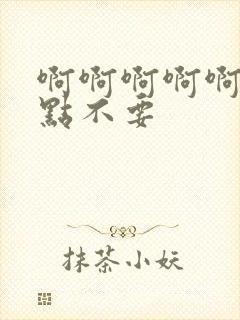 啊啊啊啊啊
點不要
抹茶小妖